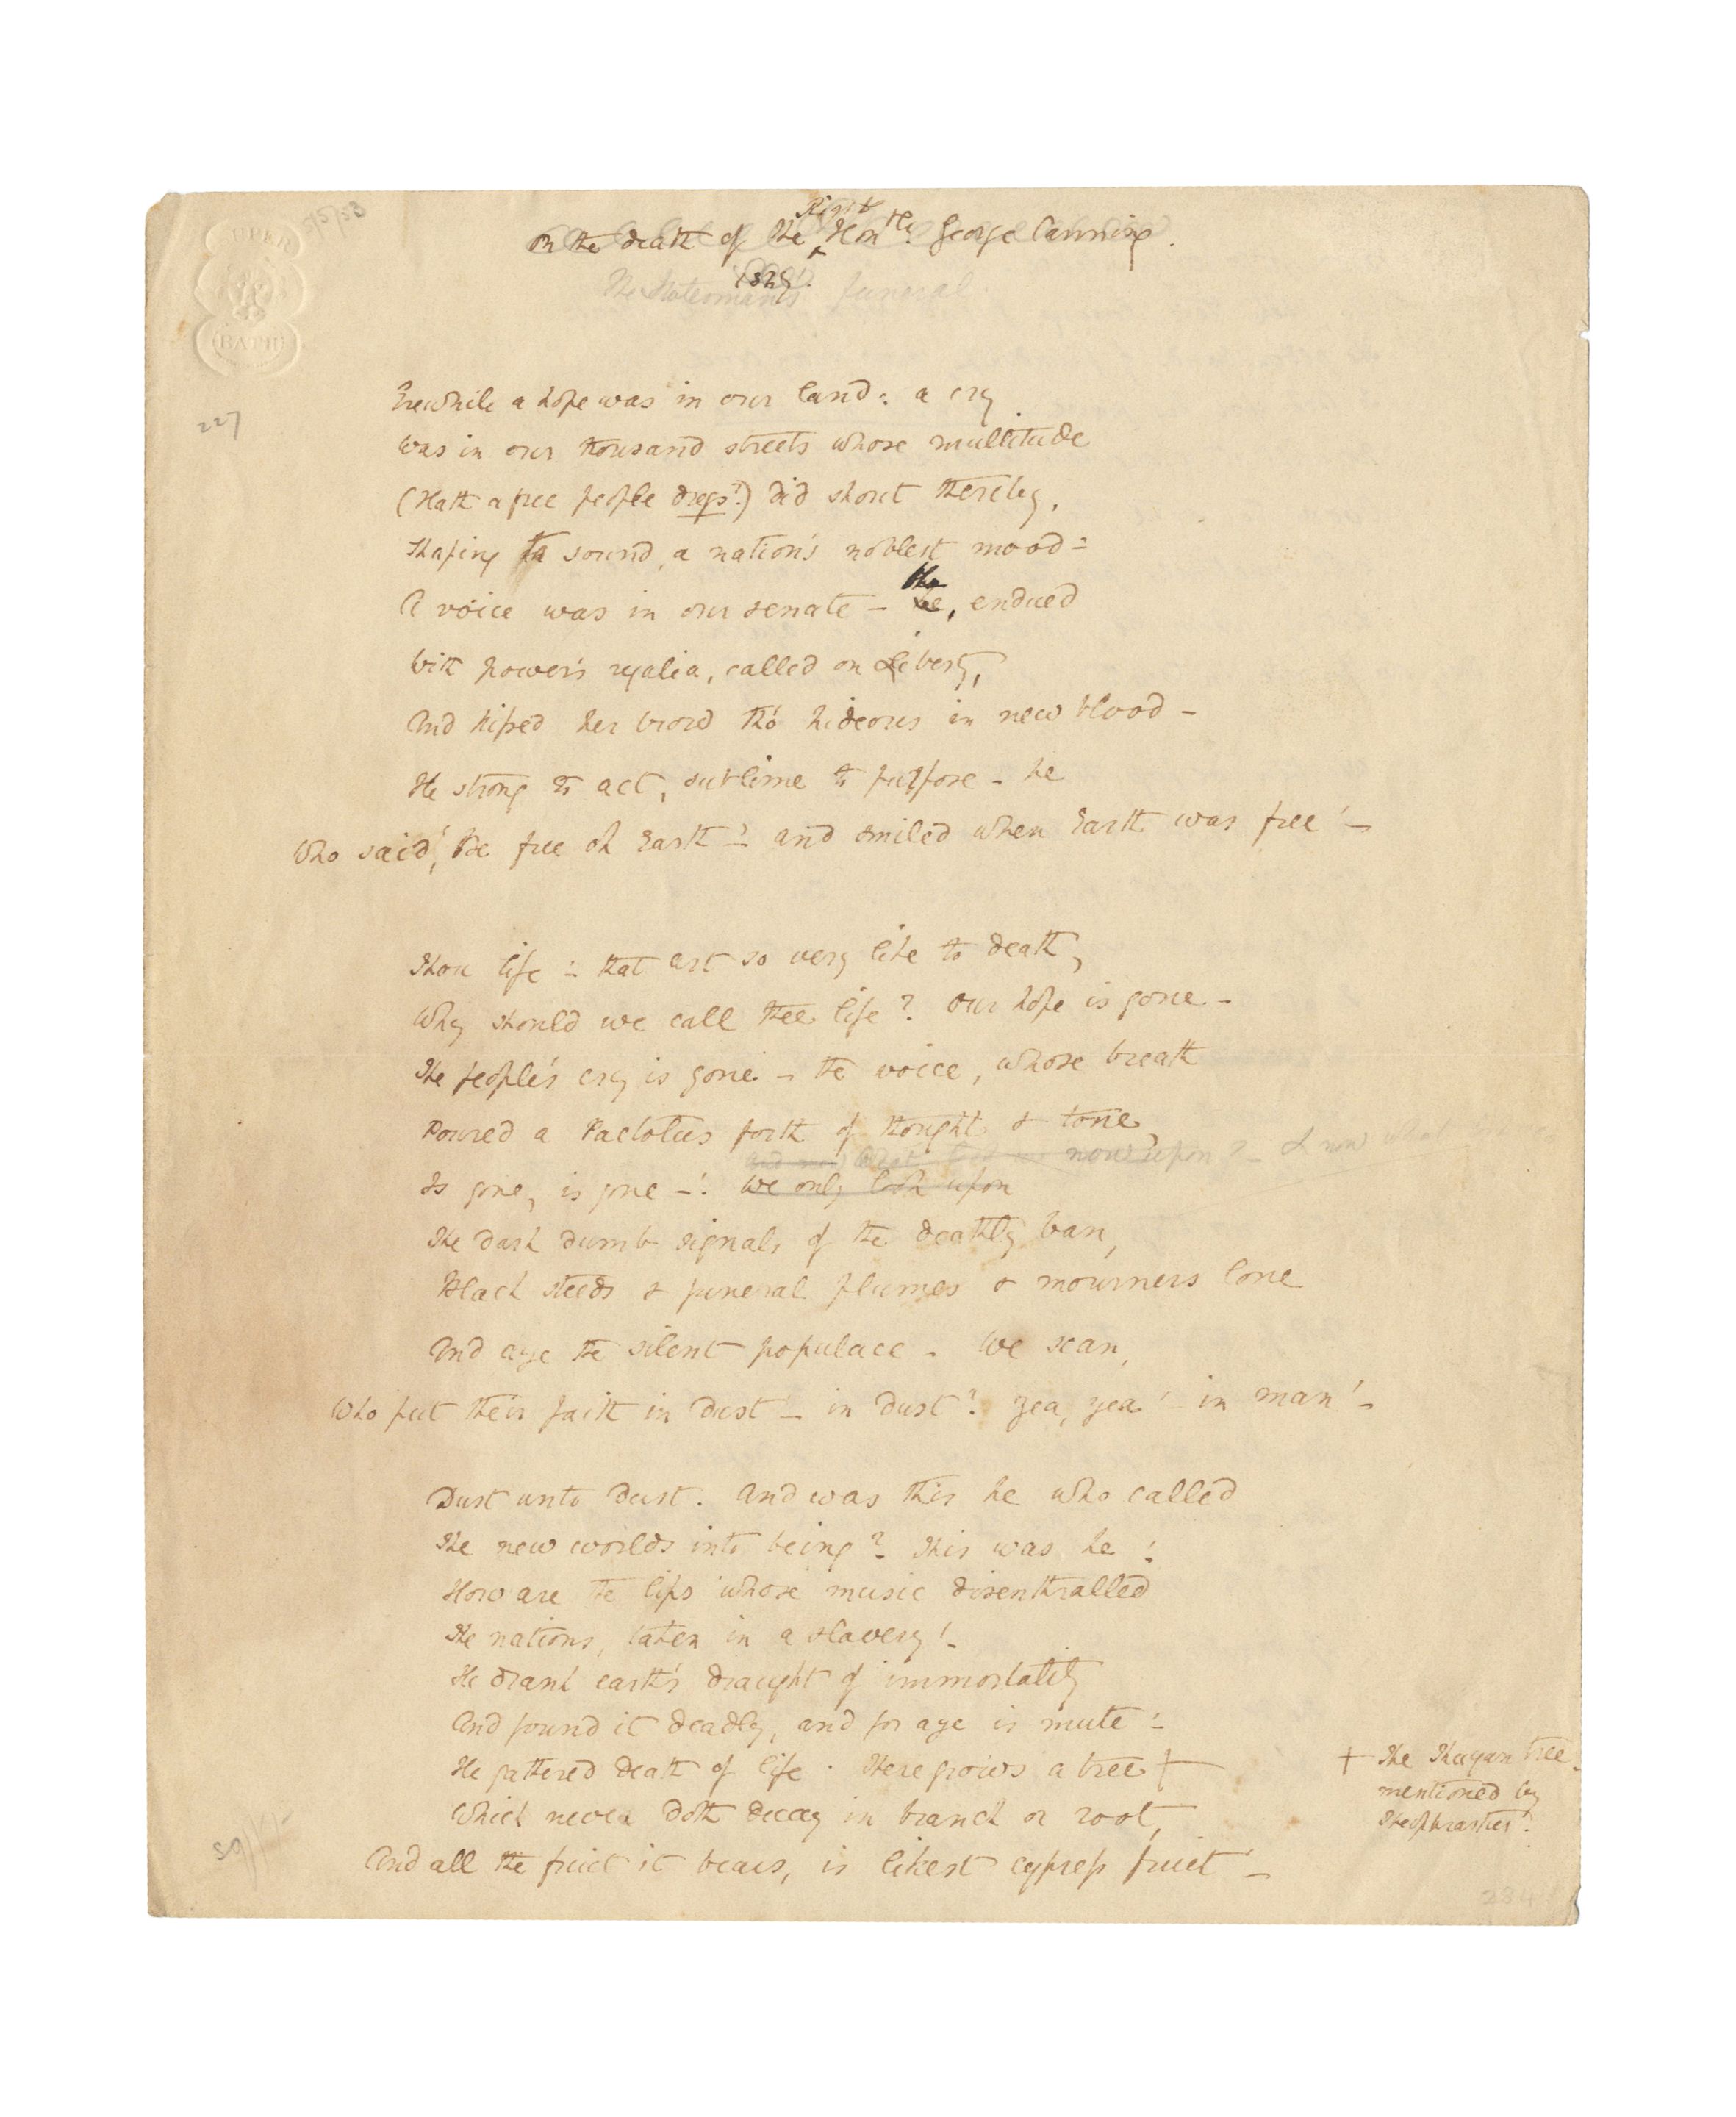 SUPER
BATH
227
On the death of the Right Honble George Canning.
1827.
The Statesman's funeral
Erewhile a hope was in our land: a cry
Was in our thousand streets whose multitude
(Hath a free people dregs?) did shout thereby,
Shaping to sound, a nation's noblest mood:
A voice was in our senate – the, endued
With power's regalia, called on Liberty,
And kissed her brow tho' hideous in new blood –
He strong to act, sublime to purpose – he
Who said, 'Be free oh Earth'! and smiled when Earth was free! –
Thou life! that art so very like to death,
Why should we call thee life? Our hope is gone –
The people's cry is gone – the voice, whose breath
Poured a Pactolus forth of thought & tone,
now upon? – & now what
Is gone, is gone –! We only look upon
The dark dumb signals of the deathly ban,
Black steeds & funeral plumes & mourners lone
And aye the silent populace. We scan,
Who put their faith in dust – in dust? yea, yea! in man! –
Dust unto dust. And was this he who called
The new worlds into being? This was he!
How are the lips whose music disenthralled
The nations, taken in a slavery! –
He drank earth's draught of immortality
And found it deadly, and for aye is mute!
He gathered death of life. There grows a tree +
Which never doth decay in branch or root,
And all the fruit it bears, is likest cypress fruit –
+ The Thuyan tree –
mentioned by
Theophrastus.
234